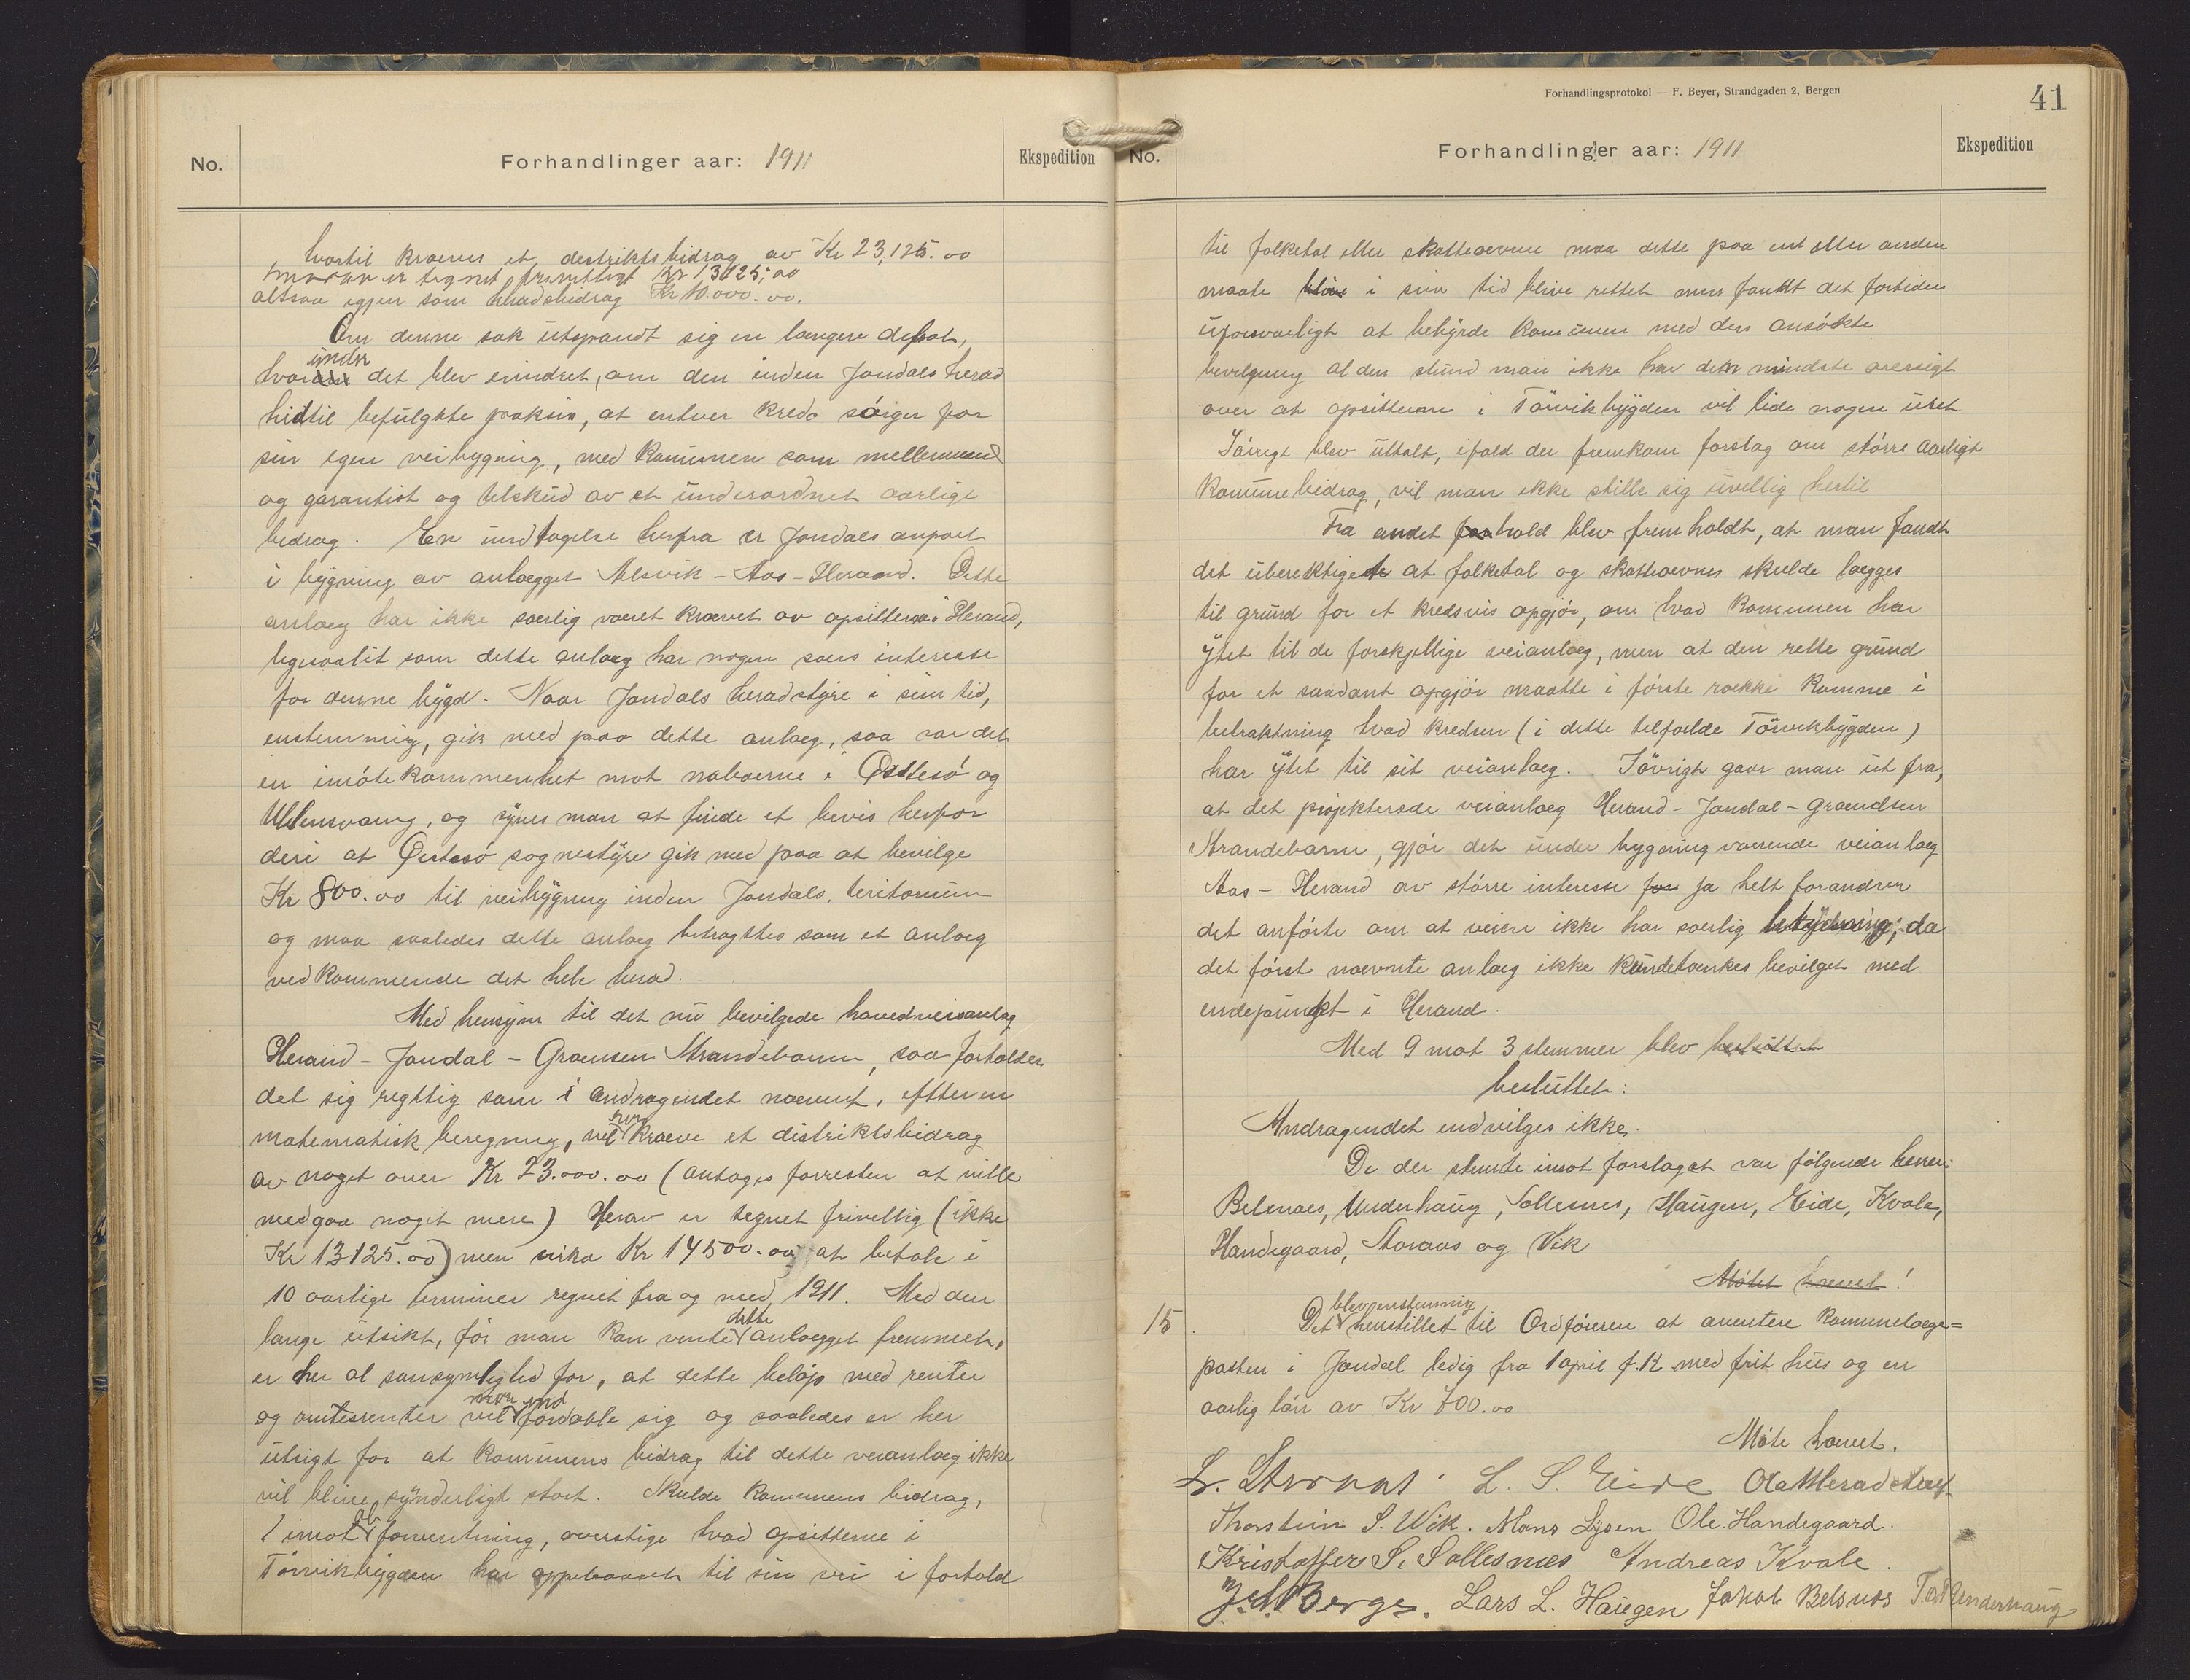 No.
Forhandlinger aar: 1911
Ekspedition
hvortil kraeves et destriktsbidrag av Kr 23,125.00
hvorav er tegnet frivilligt Kr 13125,00
altsaa igjen som heradsbidrag Kr 10.000.00.
Om denne sak utspandt sig en laengere debat,
hvorunder det blev erindret, om den inden Jondals herad
hidtil befulgte praksis, at enhver kreds sörger for
sin egen veibygning, med kommunen som mellemmand
og garantist og telskud av et underordnet aarlige
bedrag. En undtagelse herfra er Jondals anpart
i bygning av anlaegget Alsvik - Aas - Heraand. Dette
anlaeg har ikke saerlig vaeret kraevet av opsitterne i Herand,
legesaalit som dette anlaeg har nogen saers interesse
for denne bygd. Naar Jondals heradstyre i sin tid,
enstemmig, gik med paa dette anlaeg, saa var det
en imötekommenhet mot naboerne i Östesö og
Ullensvang, og synes man at finde et bevis herfor
deri at Östesö sognestyre gik med paa at bevilge
Kr 800.00 til veibygning inden Jondals teritorium
og maa saaledes dette anlaeg betragtes som et anlaeg
vedkommende det hele herad.
Med hensyn til det nu bevilgede hovedveianlaeg
Herand - Jondal - Graensen Strandebarm, saa forholder
det sig regttig som i andragendet naevent, efter en
matematisk beregning, vil her kraeve et distriktsbidrag
av noget over Kr 23.000.00 (antages forresten at ville
medgaa noget mere) Herav er tegnet frivellig (ikke
Kr 13125.00) men cirka Kr 14500.00 at betale i
10 aarlige terminer regnet fra og med 1911. Med den
lange utsikt, för man kan vente dette anlaegget fremmet,
er her al sansynlighed for, at dette belöp med renter
og rentesrenter vil mere end fordoble sig og saaledes er her
utsigt for at kommunens bidrag til dette veianlaeg ikke
vil blive synderligt stort. Skulde kommunens bidrag,
imot al forventning, overstige hvad opsitterne i
Törvikbygden har oppebaaret til sin vei i forhold
Forhandlingsprotokol — F. Beyer, Strandgaden 2, Bergen
41
No.
Forhandlinger aar: 1911
Ekspedition
til folketal eller skatteaevne maa dette paa ent eller anden
maate blive i sin tid blive rettet men fandt det fortiden
uforsvarligt at bebyrde kommunen med den ansökte
bevilgning al den stund man ikke har den mindste oversigt
over at opsitterne i Törvikbygden vil lide nogen uret
Iövrigt blev uttalt, ifald der fremkom forslag om större aarligt
kommunebidrag, vil man ikke stille sig uvellig hertil
Fra andet forhold blev fremholdt, at man fandt
det uberektigede at folketal og skatteaevnes skulde laegges
til grund for et kredsvis opgjör, om hvad kommunen har
ytet til de forskjellige veianlaeg, men at den rette grund
for et saadant opgjör maatte i förste raekke komme i
betraktning hvad kredsen (i dette telfaelde Törvikbygden)
har ytet til sit veianlaeg. Iövrigt gaar man ut fra,
at det projekterede veianlaeg Herand - Jondal - Graendsen
Strandebarm, gjör det under bygning vaerende veianlaeg
Aas - Herand av större interesse for ja helt forandrer
det anförte om at veien ikke har saerlig betydning; da
det först naevnte anlaeg ikke kunde taenkes bevilget med
endepunkt i Herand.
Med 9 mot 3 stemmer blev besluttet
besluttet:
Andragendet indvilges ikke.
De der stemte imot forslaget var fölgende herrer:
Belsnaes, Underhaug, Sollesnes, Haugen, Eide, Kvale,
Handegaard, Storaas og Vik
Mötet haevet!
15. Det blev enstemmig henstillet til Ordföreren at avertere kommunelaege=
posten i Jondal ledig fra 1 april f.K med frit hus og en
aarlig lön av Kr 700.00
Möte haevet.
L. L. S. Eide Ola
Thorstein S. Wik. Mons Lysen Ole Handegaard.
Kristoffer S. Sollesnes Andreas Kvale.
J. A. Berge. Lars L. Haugen Jakob Belsnes T. Underhaug